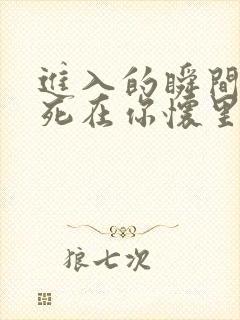 進入的瞬間
死在你懷里
狼七次